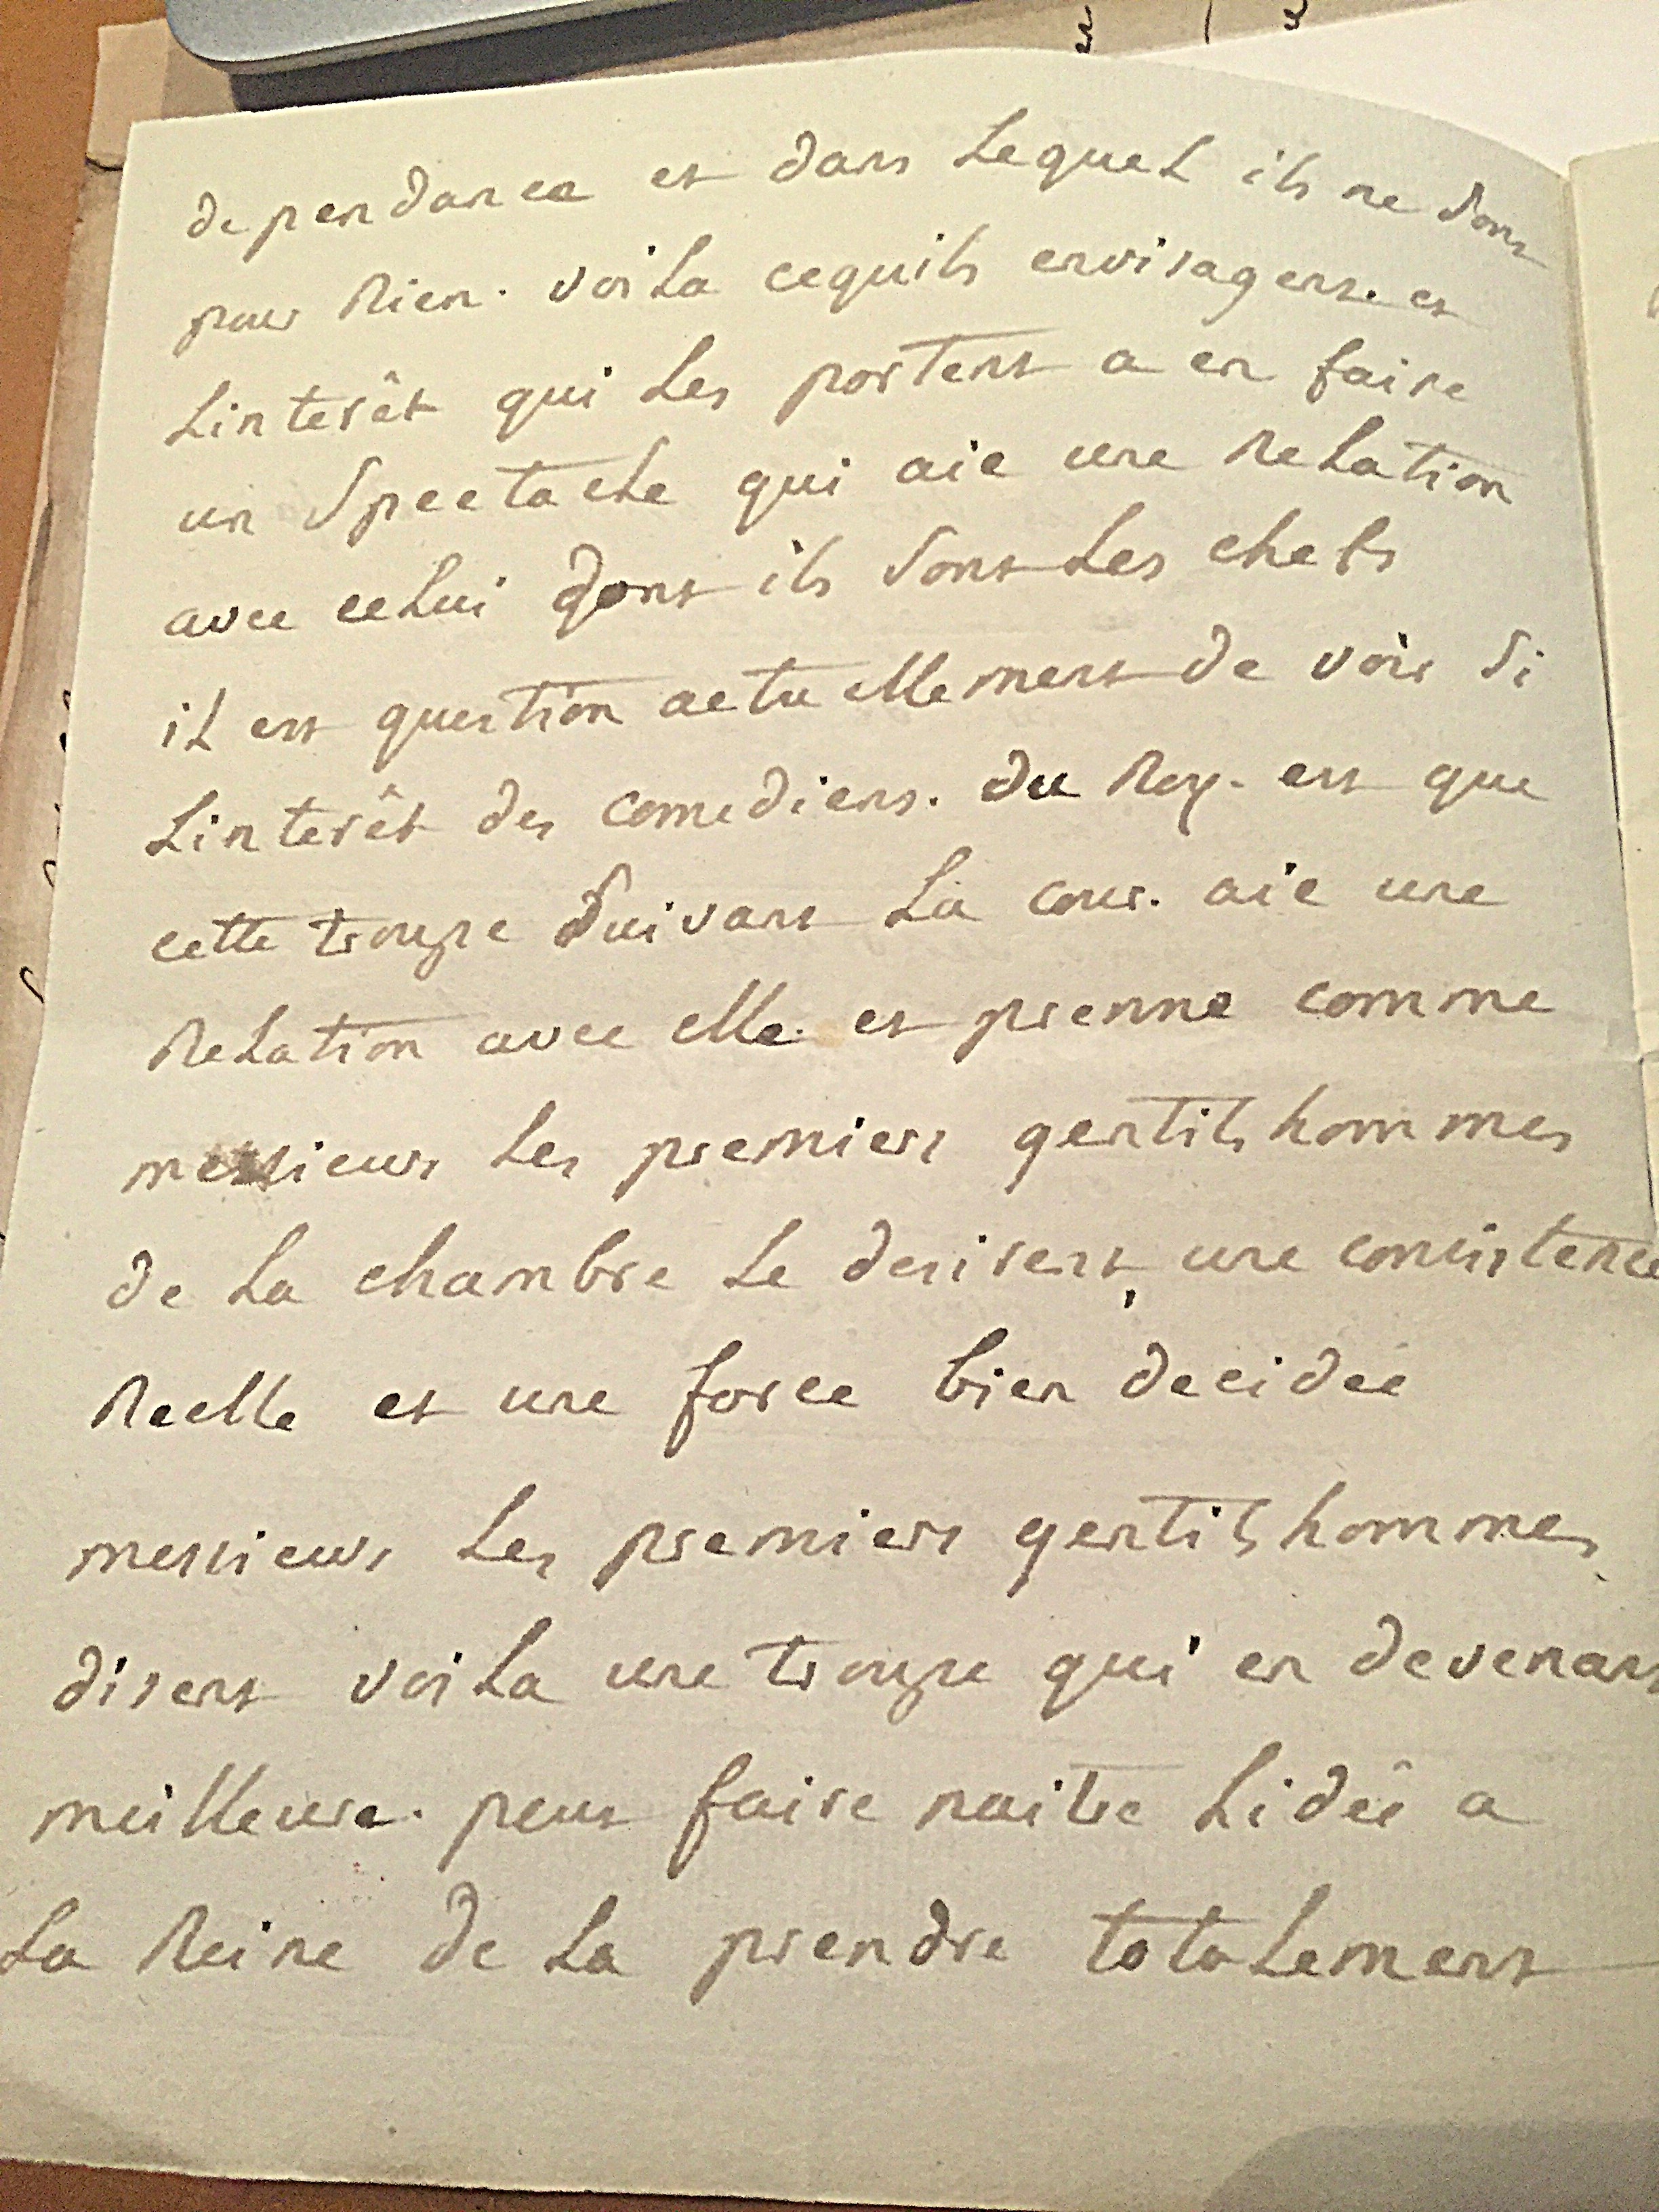 dependance et dans Lequel ils ne sont
pour Rien. voila cequils envisagent. et
Linterêt qui Les portent a en faire
un Spectacle qui aie une Relation
avec celui dont ils sont Les chefs
il est question actuellement de voir si
Linterêt des comediens. du Roy. est que
cette troupe suivant La cour. aie une
Relation avec elle. et prenne comme
messieurs Les premiers gentilshommes
de La chambre Le desirent, une consistence
Reelle et une force bien decidée
messieurs Les premiers gentilshommes
disent voila une troupe qui en devenant
meilleure. peut faire naitre Lidée a
La Reine de La prendre totalement